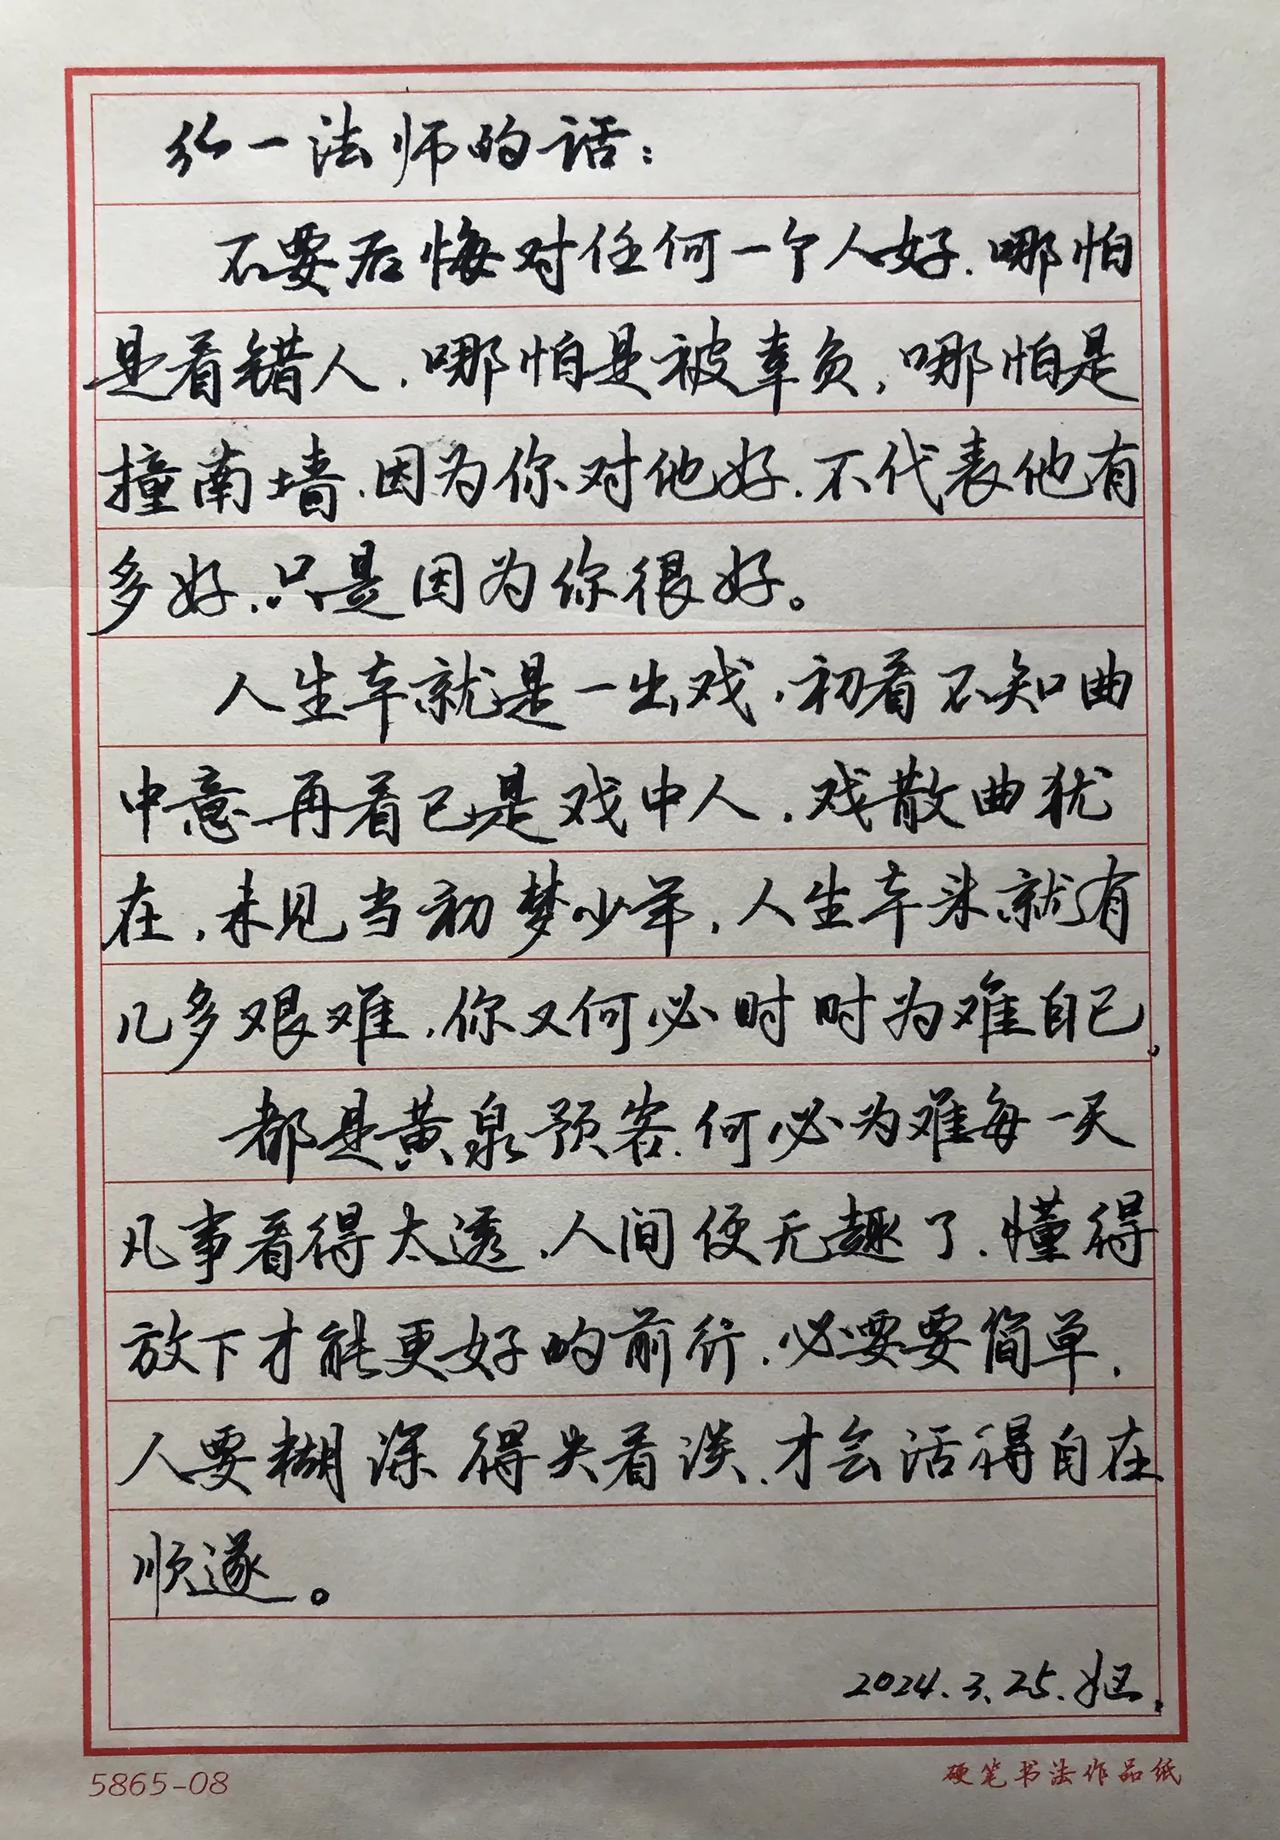 弘一法师的话：
不要后悔对任何一个人好.哪怕
是看错人,哪怕是被辜负,哪怕是
撞南墙.因为你对他好.不代表他有
多好.只是因为你很好。
人生本就是一出戏,初看不知曲
中意再看已是戏中人.戏散曲犹
在,未见当初梦少年,人生本来就有
几多艰难,你又何必时时为难自己。
都是黄泉预客.何必为难每一天
凡事看得太透.人间便无趣了.懂得
放下才能更好的前行.必要要简单.
人要糊涂得失看淡.才会活得自在
顺遂。
2024.3.25.
5865-08
硬笔书法作品纸